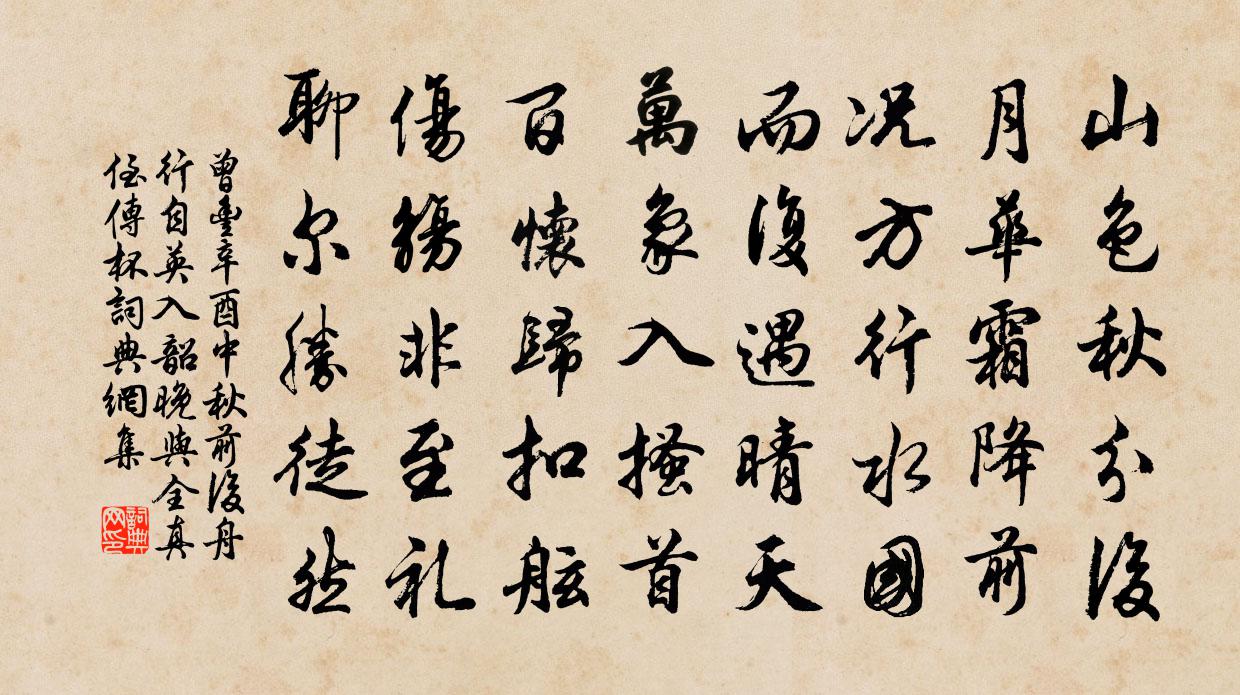 山色秋分後
月華霜降前
況方行水國
而復遇晴天
萬象入搔首
百懷歸扣舷
傷觴非至礼
聊尔勝徒然
曾豐辛酉中秋前後舟
行自英入韶晚與全真
侄傳杯詞典網集
詞典
网印